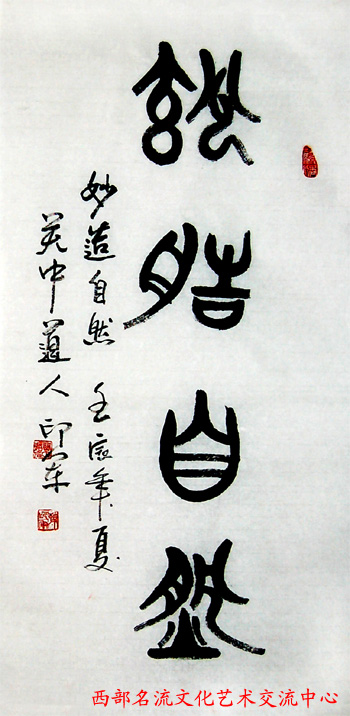 妙造自然
妙造自然 壬年夏
中道人 印东
西部名流文化艺术交流中心